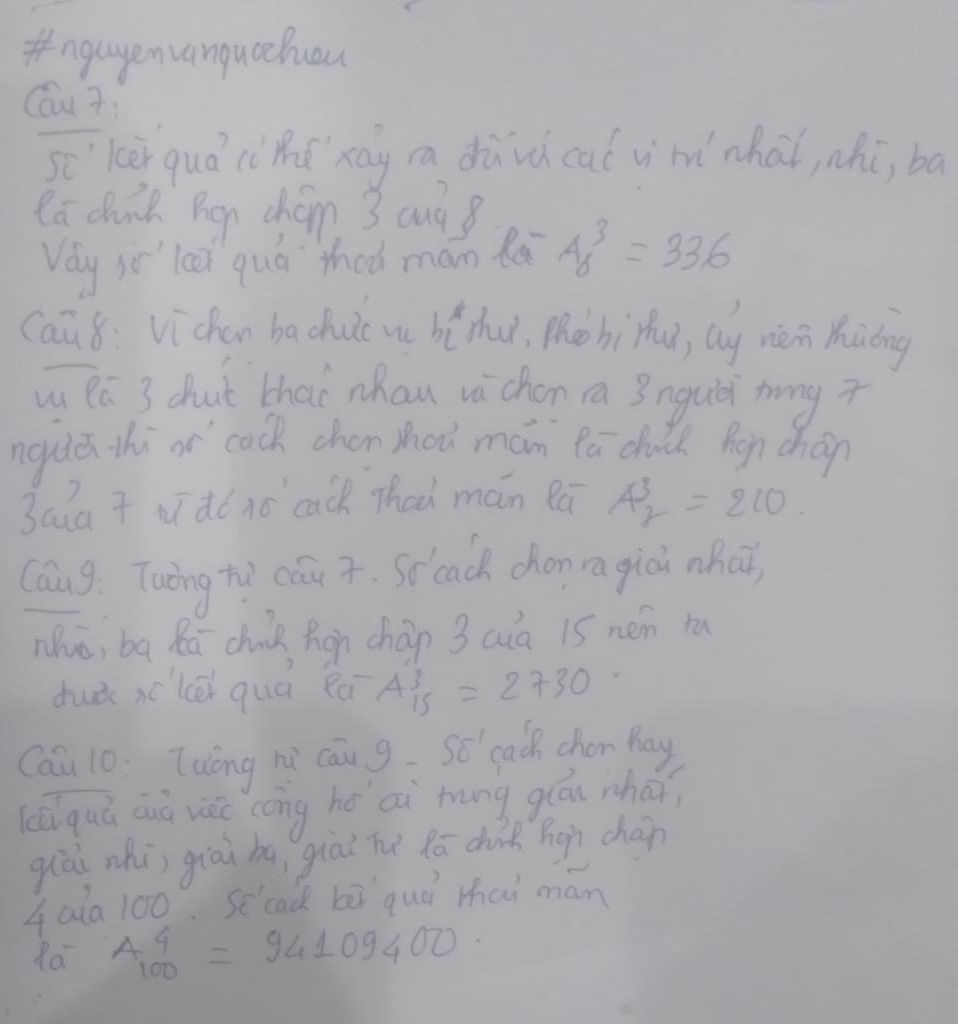 #nguyenvanquochieu
Câu 7:
Số kết quả có thể xảy ra đối với các vị trí nhất, nhì, ba
là chỉnh hợp chập 3 của 8
Vậy số kết quả thoả mãn là A₈³ = 336
Câu 8: Vì chọn ba chức vụ bí thư, phó bí thư, ủy viên thường
vụ là 3 chức khác nhau và chọn ra 3 người trong 7
người thì số cách chọn thoả mãn là chỉnh hợp chập
3 của 7 từ đó số cách thoả mãn là A₇³ = 210.
Câu 9: Tương tự câu 7. Số cách chọn ra giải nhất,
nhì, ba là chỉnh hợp chập 3 của 15 nên ta
được số kết quả là A₁₅³ = 2730.
Câu 10: Tương tự câu 9 - Số cách chọn hay
kết quả của việc công bố ai trúng giải nhất,
giải nhì, giải ba, giải tư là chỉnh hợp chập
4 của 100. Số cách kết quả thoả mãn
là A₁₀₀⁴ = 94109400.